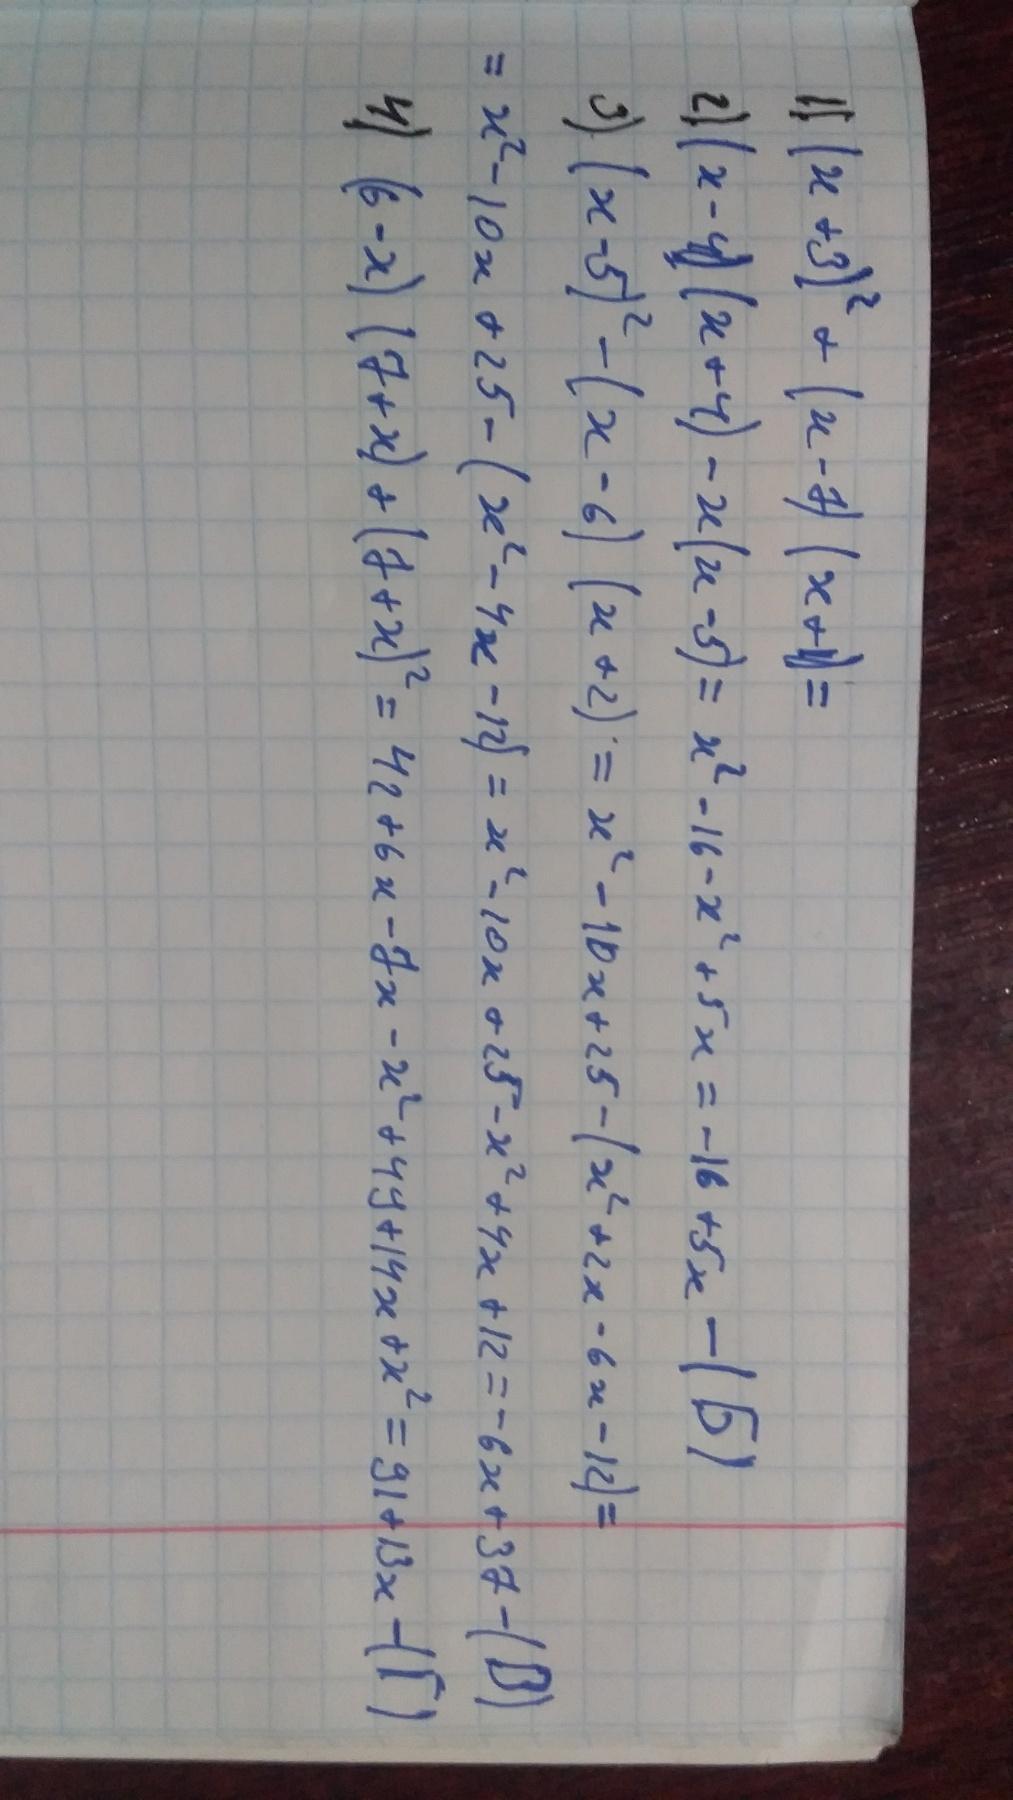 1) (x+3)² + (x-7)(x+4)=
2) (x-4)(x+4)-x(x-5)= x²-16-x²+5x=-16+5x - (Б)
3) (x-5)²-(x-6)(x+2)= x²-10x+25-(x²+2x-6x-12)=
= x²-10x+25-(x²-4x-12)= x²-10x+25-x²+4x+12=-6x+37-(В)
4) (6-x)(7+x)+(7+x)²= 42+6x-7x-x²+49+14x+x²=91+13x-(Г)